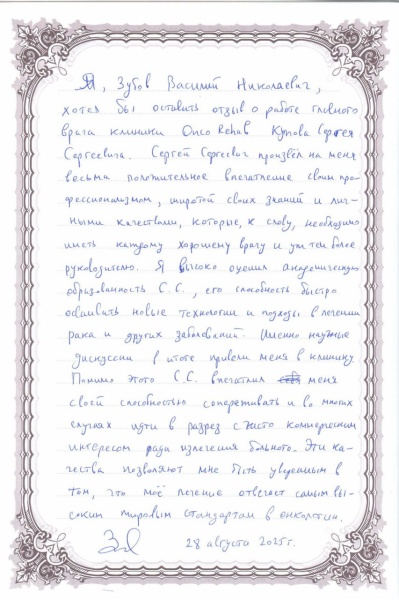 Я, Зубов Василий Николаевич,
хотел бы оставить отзыв о работе главного
врача клиники Onco Rehab Купова Сергея
Сергеевича. Сергей Сергеевич произвёл на меня
весьма положительное впечатление своим про-
фессионализмом, широтой своих знаний и лич-
ными качествами, которые, к слову, необходимо
иметь каждому хорошему врачу и уж тем более
руководителю. Я высоко оценил академическую
образованность С.С., его способность быстро
осваивать новые технологии и подходы в лечении
рака и других заболеваний. Именно научные
дискуссии в итоге привели меня в клинику.
Помимо этого С.С. впечатлил меня
своей способностью сопереживать и во многих
случаях идти в разрез с чисто коммерческим
интересом ради излечения больного. Эти ка-
чества позволяют мне быть уверенным в
том, что моё лечение отвечает самым вы-
соким мировым стандартам в онкологии.
28 августа 2025 г.